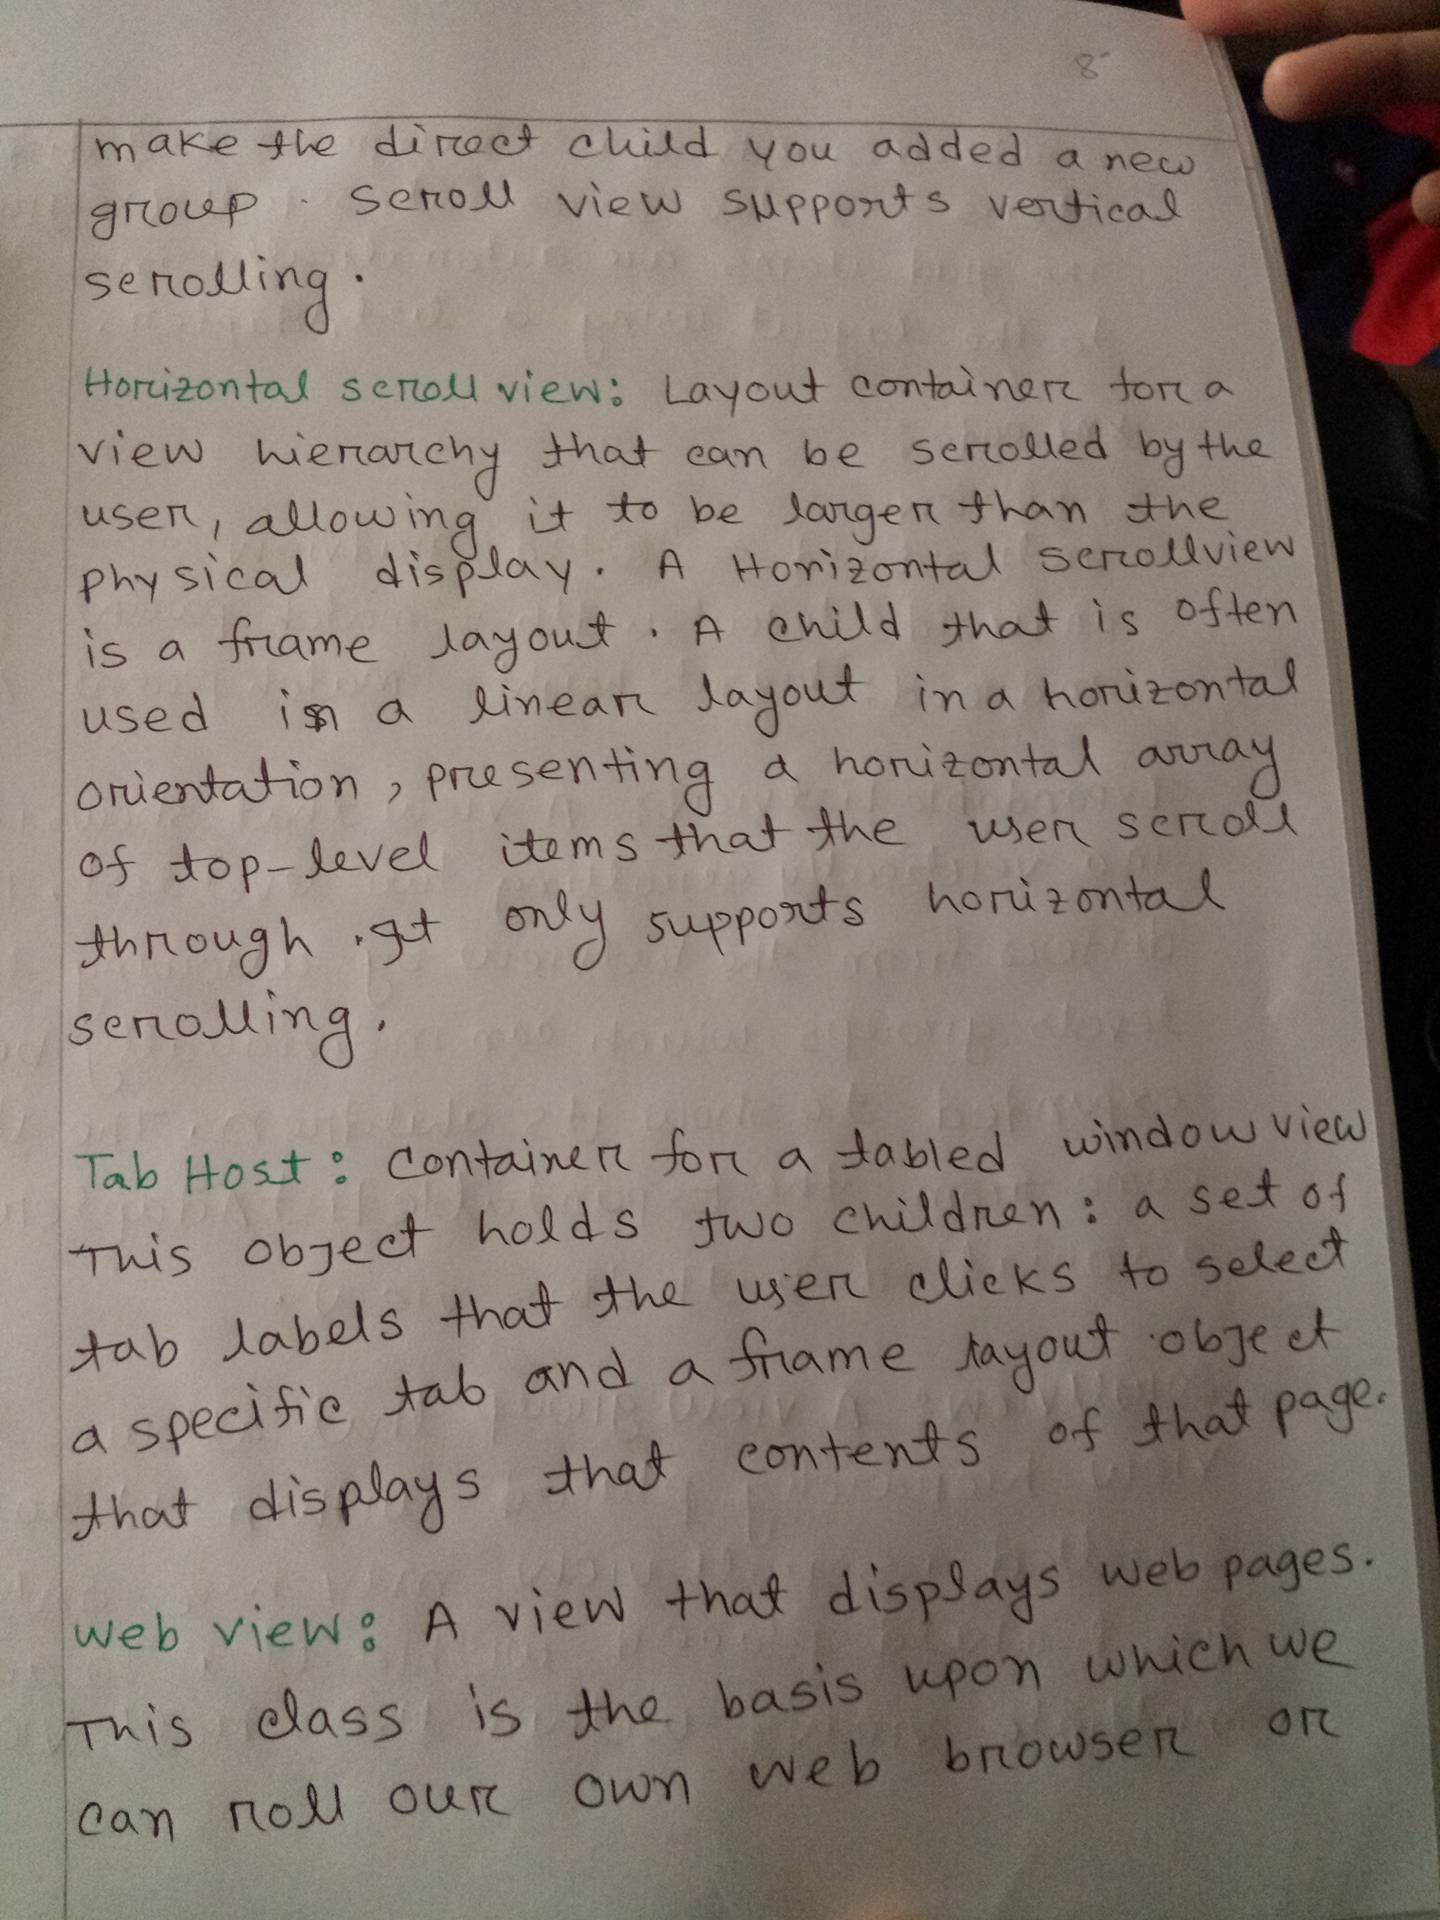 8
make the direct child you added a new
group. Scroll view supports vertical
scrolling.
Horizontal scroll view: Layout container for a
view hierarchy that can be scrolled by the
user, allowing it to be larger than the
physical display. A Horizontal scrollview
is a frame layout. A child that is often
used is a linear layout in a horizontal
orientation, presenting a horizontal array
of top-level items that the user scroll
through. It only supports horizontal
scrolling.
Tab Host: Container for a tabled window view
This object holds two children: a set of
tab labels that the user clicks to select
a specific tab and a frame layout object
that displays that contents of that page.
Web view: A view that displays web pages.
This class is the basis upon which we
can roll our own web browser or